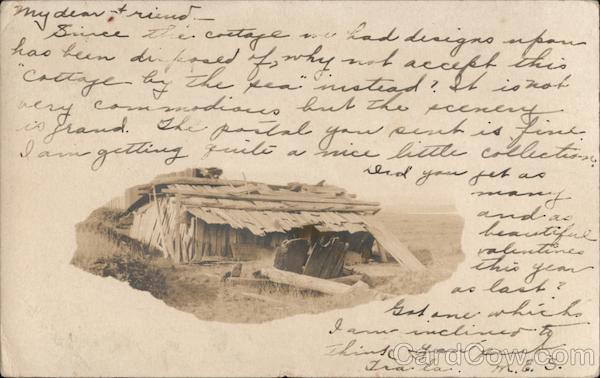 My dear friend_
Since the cottage we had designs upon
has been disposed of, why not accept this
"cottage by the sea" instead? It is not
very commodious but the scenery
is grand. The postal you sent is fine.
I am getting quite a nice little collection.
Did you get as
many
and as
beautiful
valentines
this year
as last?
Got one which
I am inclined to
think
Tra la. M.E.S.
CardCow.com